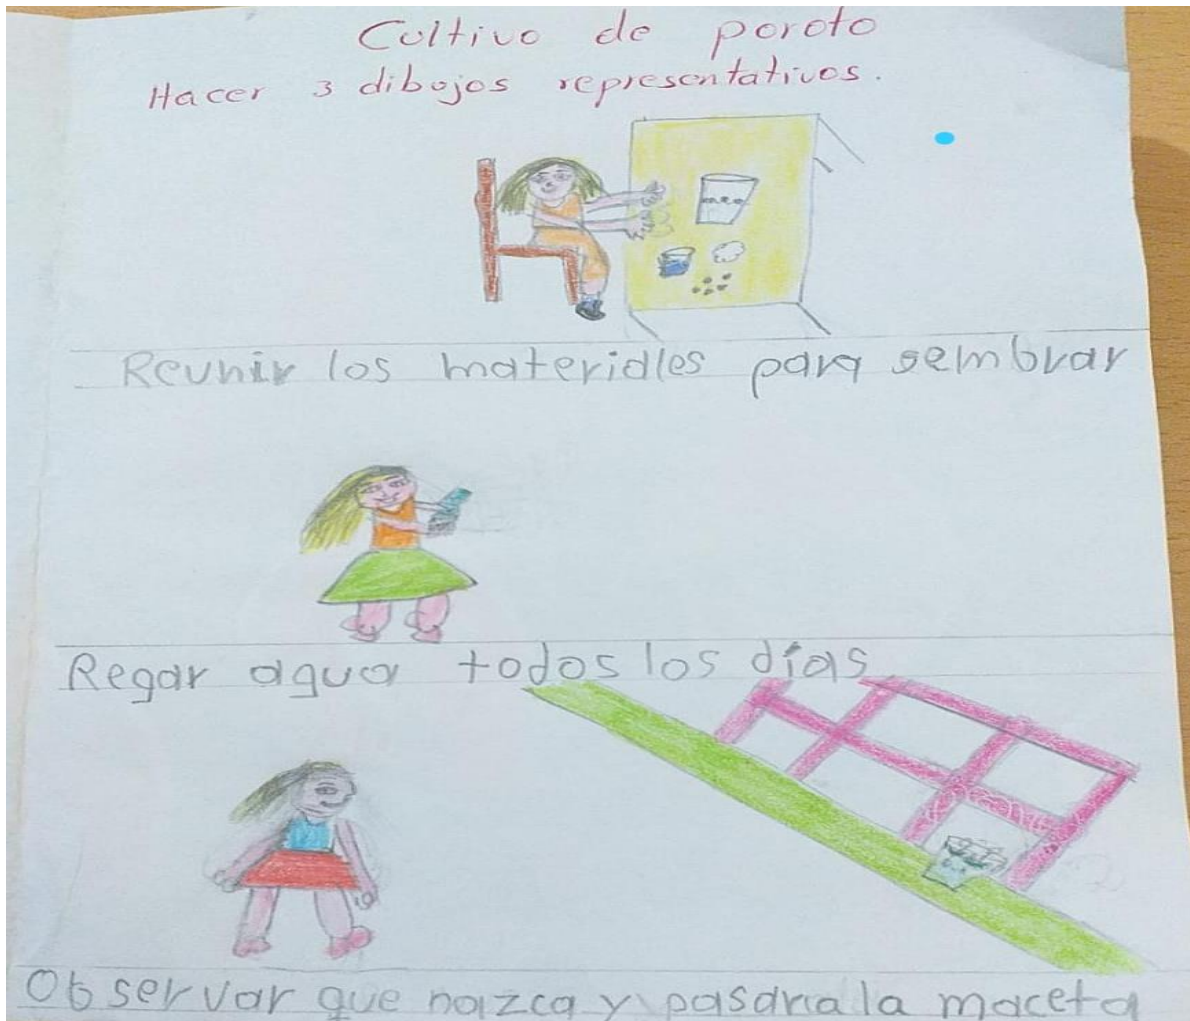 Cultivo de poroto
Hacer 3 dibujos representativos.
Reunir los materiales para sembrar
Regar agua todos los días
Observar que nazca y pasarla la maceta